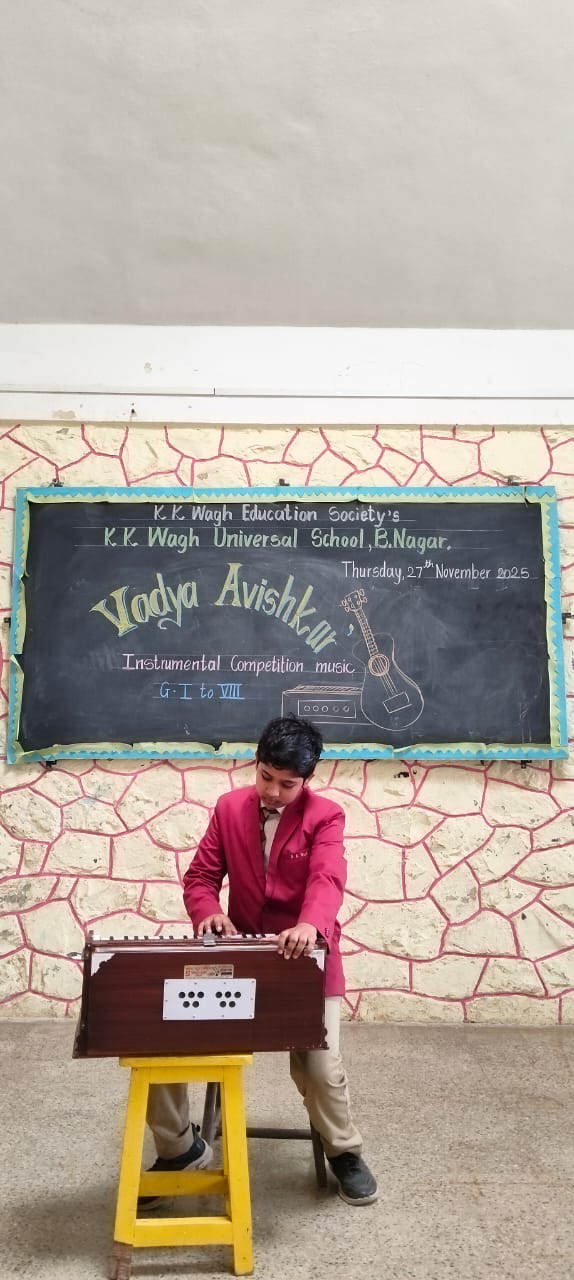 K K Wagh Education Society's
K K Wagh Universal School, B.Nagar.
Thursday, 27th November 2025
Vadya Avishkar
Instrumental Competition music
G. I to VIII